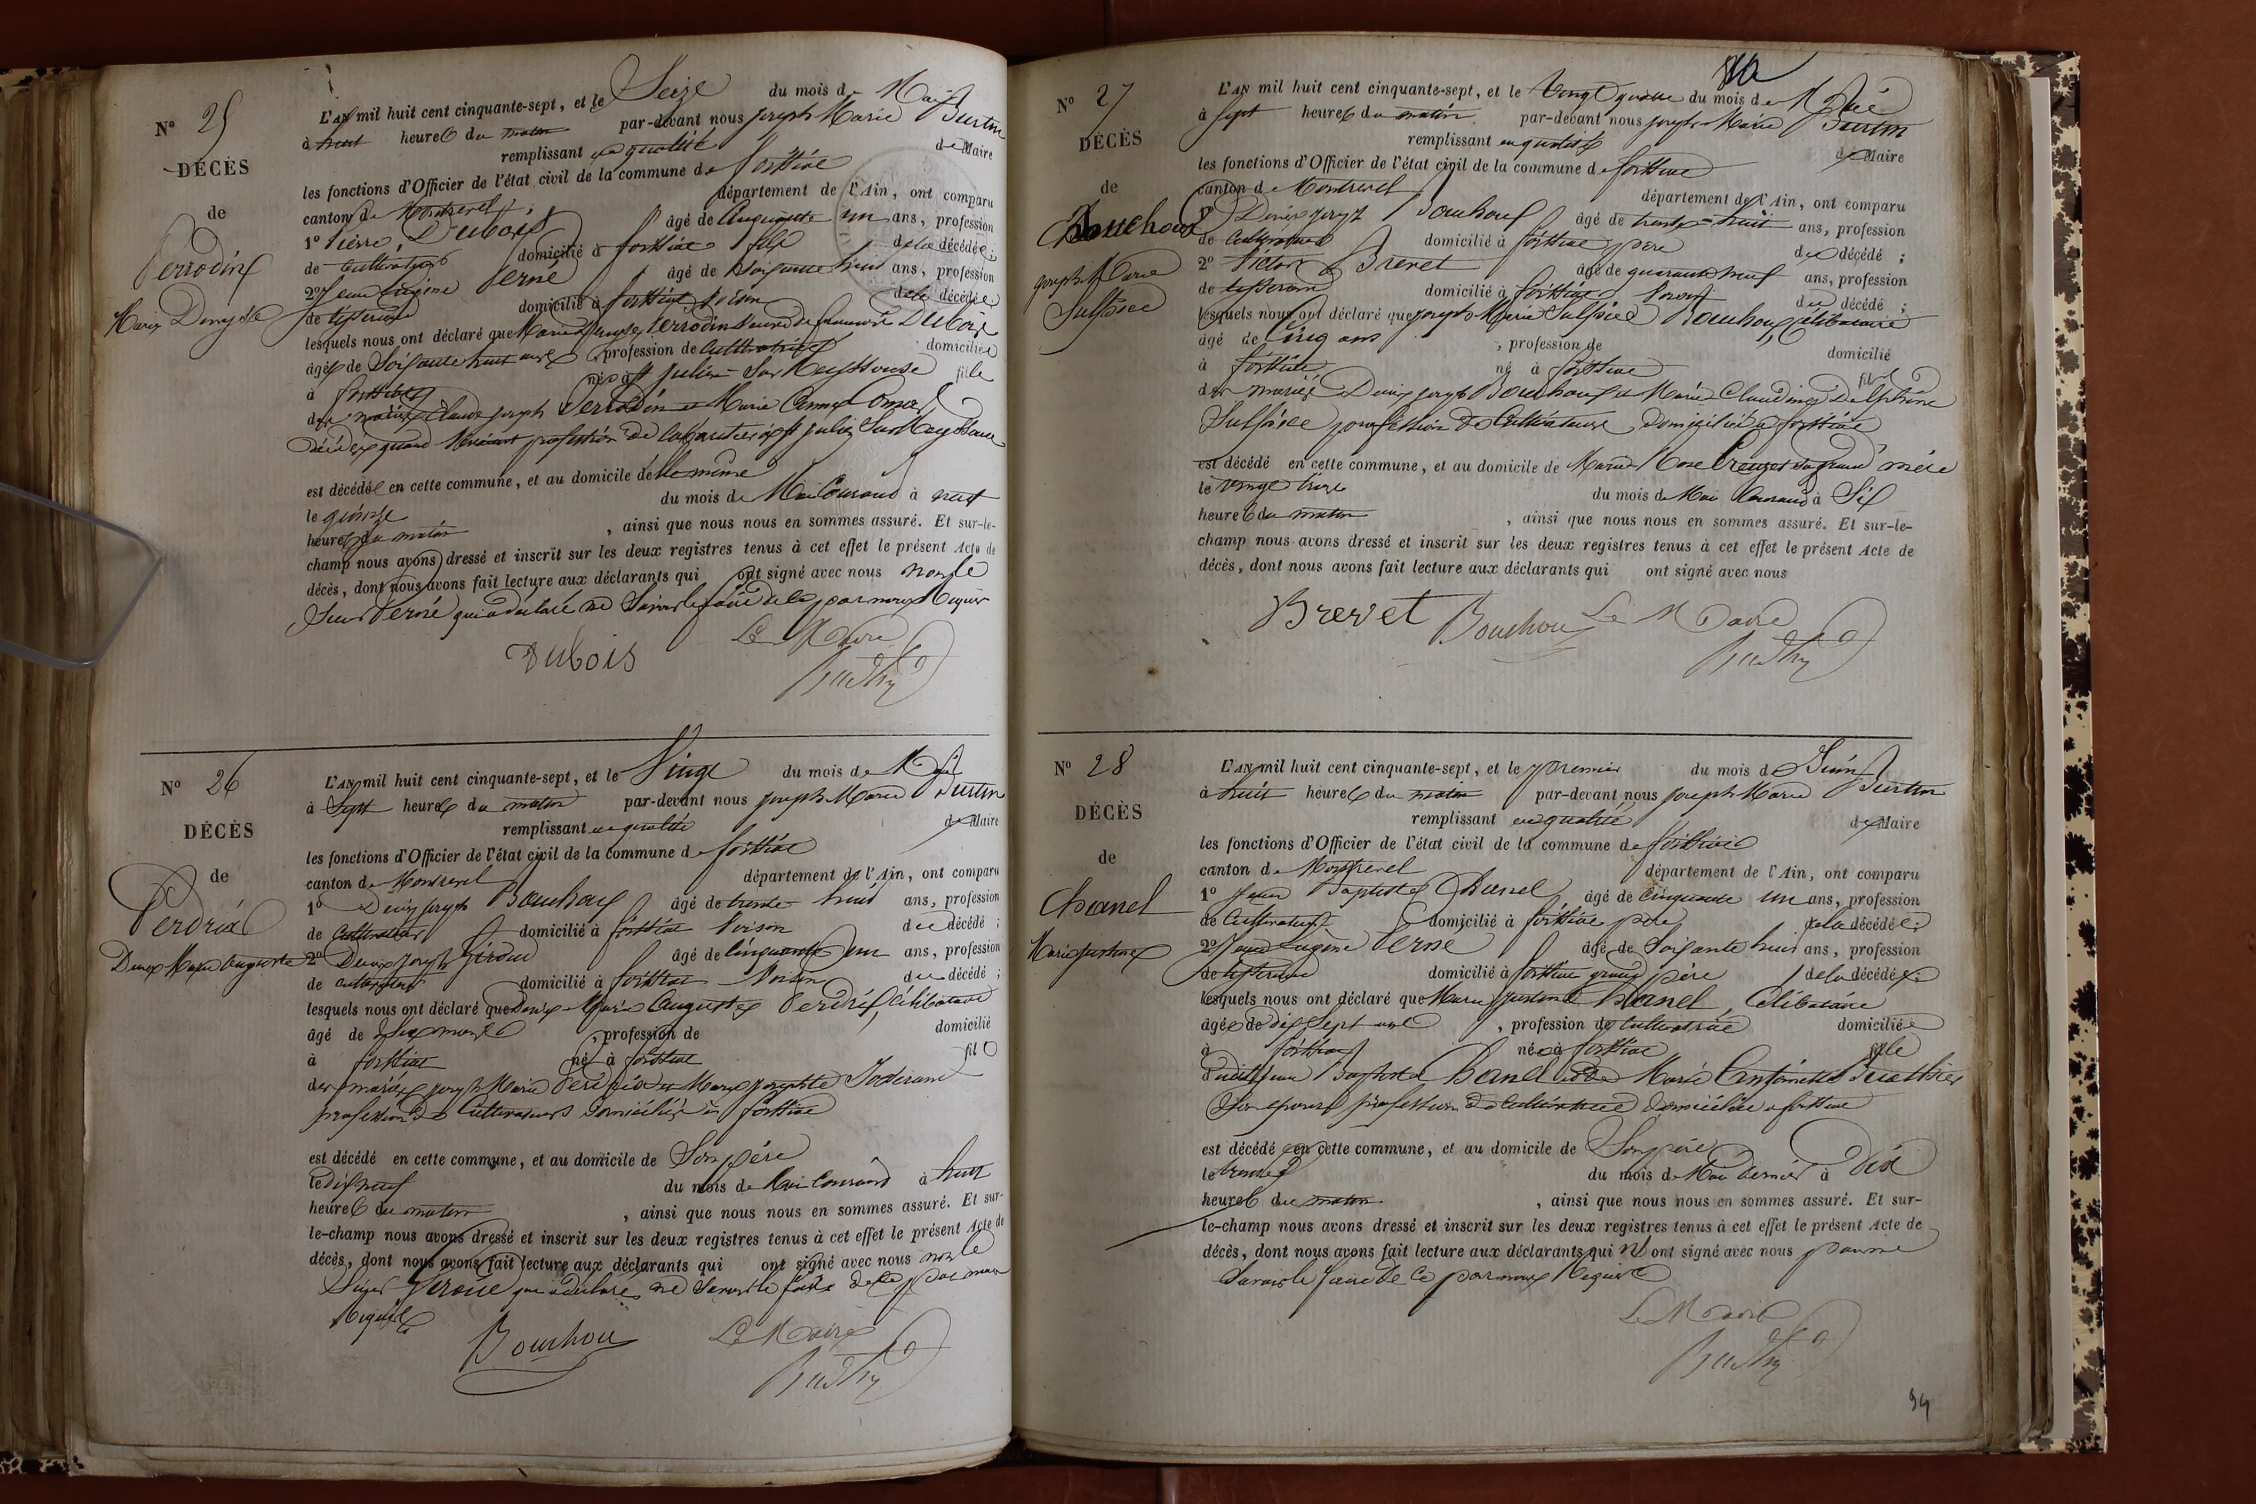 Nº 25
DÉCÈS
de
Perrodin
Marie Denyse
L'AN mil huit cent cinquante-sept, et le Seize du mois de Mai
à huit heures du matin par-devant nous joseph Marie Burtin
remplissant en qualité de Maire
les fonctions d'Officier de l'état civil de la commune de foissiat
canton de Montrevel département de l'Ain, ont comparu
1º Pierre Dubois âgé de Cinquante un ans, profession
de Cultivateur domicilié à foissiat fils de la décédée;
2º Jean Eugène Perne âgé de Soixante huit ans, profession
de tisserand domicilié à foissiat Voisin de la décédée
lesquels nous ont déclaré que Marie Denyse Perrodin Veuve de francois Dubois
âgée de Soixante huit ans profession de Cultivatrice domiciliée
à foissiat née à St julien Sur Reyssouze fille
des mariés Claude joseph Perrodin et Marie Anne
décédés quand Vivaient profession de à St julien Sur Reyssouze
est décédée en cette commune, et au domicile d'elle même
le quinze du mois de Mai Courant à neuf
heures du matin, ainsi que nous nous en sommes assuré. Et sur-le-
champ nous avons dressé et inscrit sur les deux registres tenus à cet effet le présent Acte de
décès, dont nous avons fait lecture aux déclarants qui ont signé avec nous non le
Sieur Perne qui a déclaré ne Savoir le faire de ce par nous Requis
Dubois
Le Maire
Nº 26
DÉCÈS
de
Perdrix
Denis Marie Auguste
L'AN mil huit cent cinquante-sept, et le Vingt du mois de Mai
à Sept heures du matin par-devant nous joseph Marie Burtin
remplissant en qualité de Maire
les fonctions d'Officier de l'état civil de la commune de foissiat
canton de Montrevel département de l'Ain, ont comparu
1º Denis joseph Bouchoux âgé de trente huit ans, profession
de Cultivateur domicilié à foissiat Voisin du décédé;
2º Denis joseph Giroud âgé de Cinquante un ans, profession
de cultivateur domicilié à foissiat Voisin du décédé;
lesquels nous ont déclaré que Denis Marie Auguste Perdrix, Célibataire
âgé de Six mois, profession de domicilié
à foissiat né à foissiat fils
des mariés joseph Marie Perdrix et Marie Josephte
profession de Cultivateurs domiciliés à foissiat
est décédé en cette commune, et au domicile de Son père
le dix neuf du mois de Mai Courant à huit
heures du matin, ainsi que nous nous en sommes assuré. Et sur-
le-champ nous avons dressé et inscrit sur les deux registres tenus à cet effet le présent Acte de
décès, dont nous avons fait lecture aux déclarants qui ont signé avec nous non le
Sieur Giroud qui a déclaré ne Savoir le faire de ce par nous
Requis
Bouchou
Le Maire
Nº 27
DÉCÈS
de
Bouchoux
joseph Marie
Sulpice
L'AN mil huit cent cinquante-sept, et le Vingt quatre du mois de Mai
à Sept heures du matin par-devant nous joseph Marie Burtin
remplissant en qualité de Maire
les fonctions d'Officier de l'état civil de la commune de foissiat
canton de Montrevel département de l'Ain, ont comparu
1º Denis joseph Bouchoux âgé de trente-huit ans, profession
de Cultivateur domicilié à foissiat père du décédé;
2º Victor Brevet âgé de quarante neuf ans, profession
de tisserand domicilié à foissiat Voisin du décédé;
lesquels nous ont déclaré que joseph Marie Sulpice Bouchoux, Célibataire
âgé de Cinq ans, profession de domicilié
à foissiat né à foissiat fils
des mariés Denis joseph Bouchoux et Marie Claudine Delphine
Sulpice profession de Cultivateurs, domiciliés à foissiat
est décédé en cette commune, et au domicile de Marie Rose Creuzet Sa grand mère
le vingt trois du mois de Mai Courant à Six
heures du matin, ainsi que nous nous en sommes assuré. Et sur-le-
champ nous avons dressé et inscrit sur les deux registres tenus à cet effet le présent Acte de
décès, dont nous avons fait lecture aux déclarants qui ont signé avec nous
Brevet Bouchou Le Maire
Nº 28
DÉCÈS
de
Chanel
Marie justine
L'AN mil huit cent cinquante-sept, et le premier du mois de Juin
à huit heures du matin par-devant nous joseph Marie Burtin
remplissant en qualité de Maire
les fonctions d'Officier de l'état civil de la commune de foissiat
canton de Montrevel département de l'Ain, ont comparu
1º Jean Baptiste Chanel âgé de Cinquante un ans, profession
de Cultivateur domicilié à foissiat père de la décédée;
2º Jean Eugène Perne âgé de Soixante huit ans, profession
de tisserand domicilié à foissiat grand père de la décédée;
lesquels nous ont déclaré que Marie justine Chanel, Célibataire
âgée de dix Sept ans, profession de Cultivatrice domiciliée
à foissiat née à foissiat fille
dudit Jean Baptiste Chanel et de Marie Antoinette
Son épouse profession de Cultivatrice domiciliée à foissiat
est décédé en cette commune, et au domicile de Son père
le trente du mois de Mai dernier à dix
heures du matin, ainsi que nous nous en sommes assuré. Et sur-
le-champ nous avons dressé et inscrit sur les deux registres tenus à cet effet le présent Acte de
décès, dont nous avons fait lecture aux déclarants qui n'ont signé avec nous pour ne
Savoir le faire de ce par nous Requis
Le Maire
94